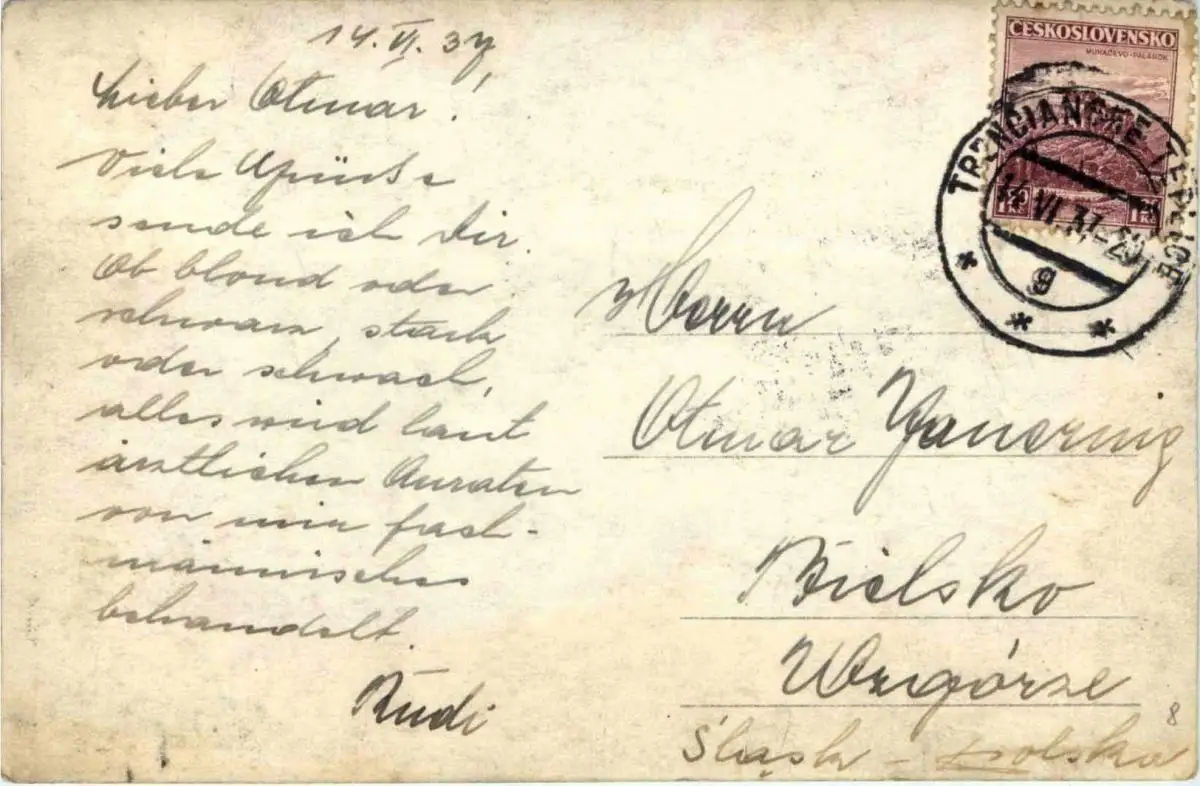 14. VI. 37,
Lieber Otmar!
Viele Grüsse
sende ich Dir.
Ob blond oder
schwarz, stark
oder schwach,
alles wird laut
ärztlichen
von mir fach-
männisches
behandelt.
Rudi
ČESKOSLOVENSKO
MUKAČEVO-PALANOK
TRENČIANSKE TEPLICE
14 VI 37-20
g
Herrn
Otmar
Bielsko
Wzgórze
Śląsk - Polska
8